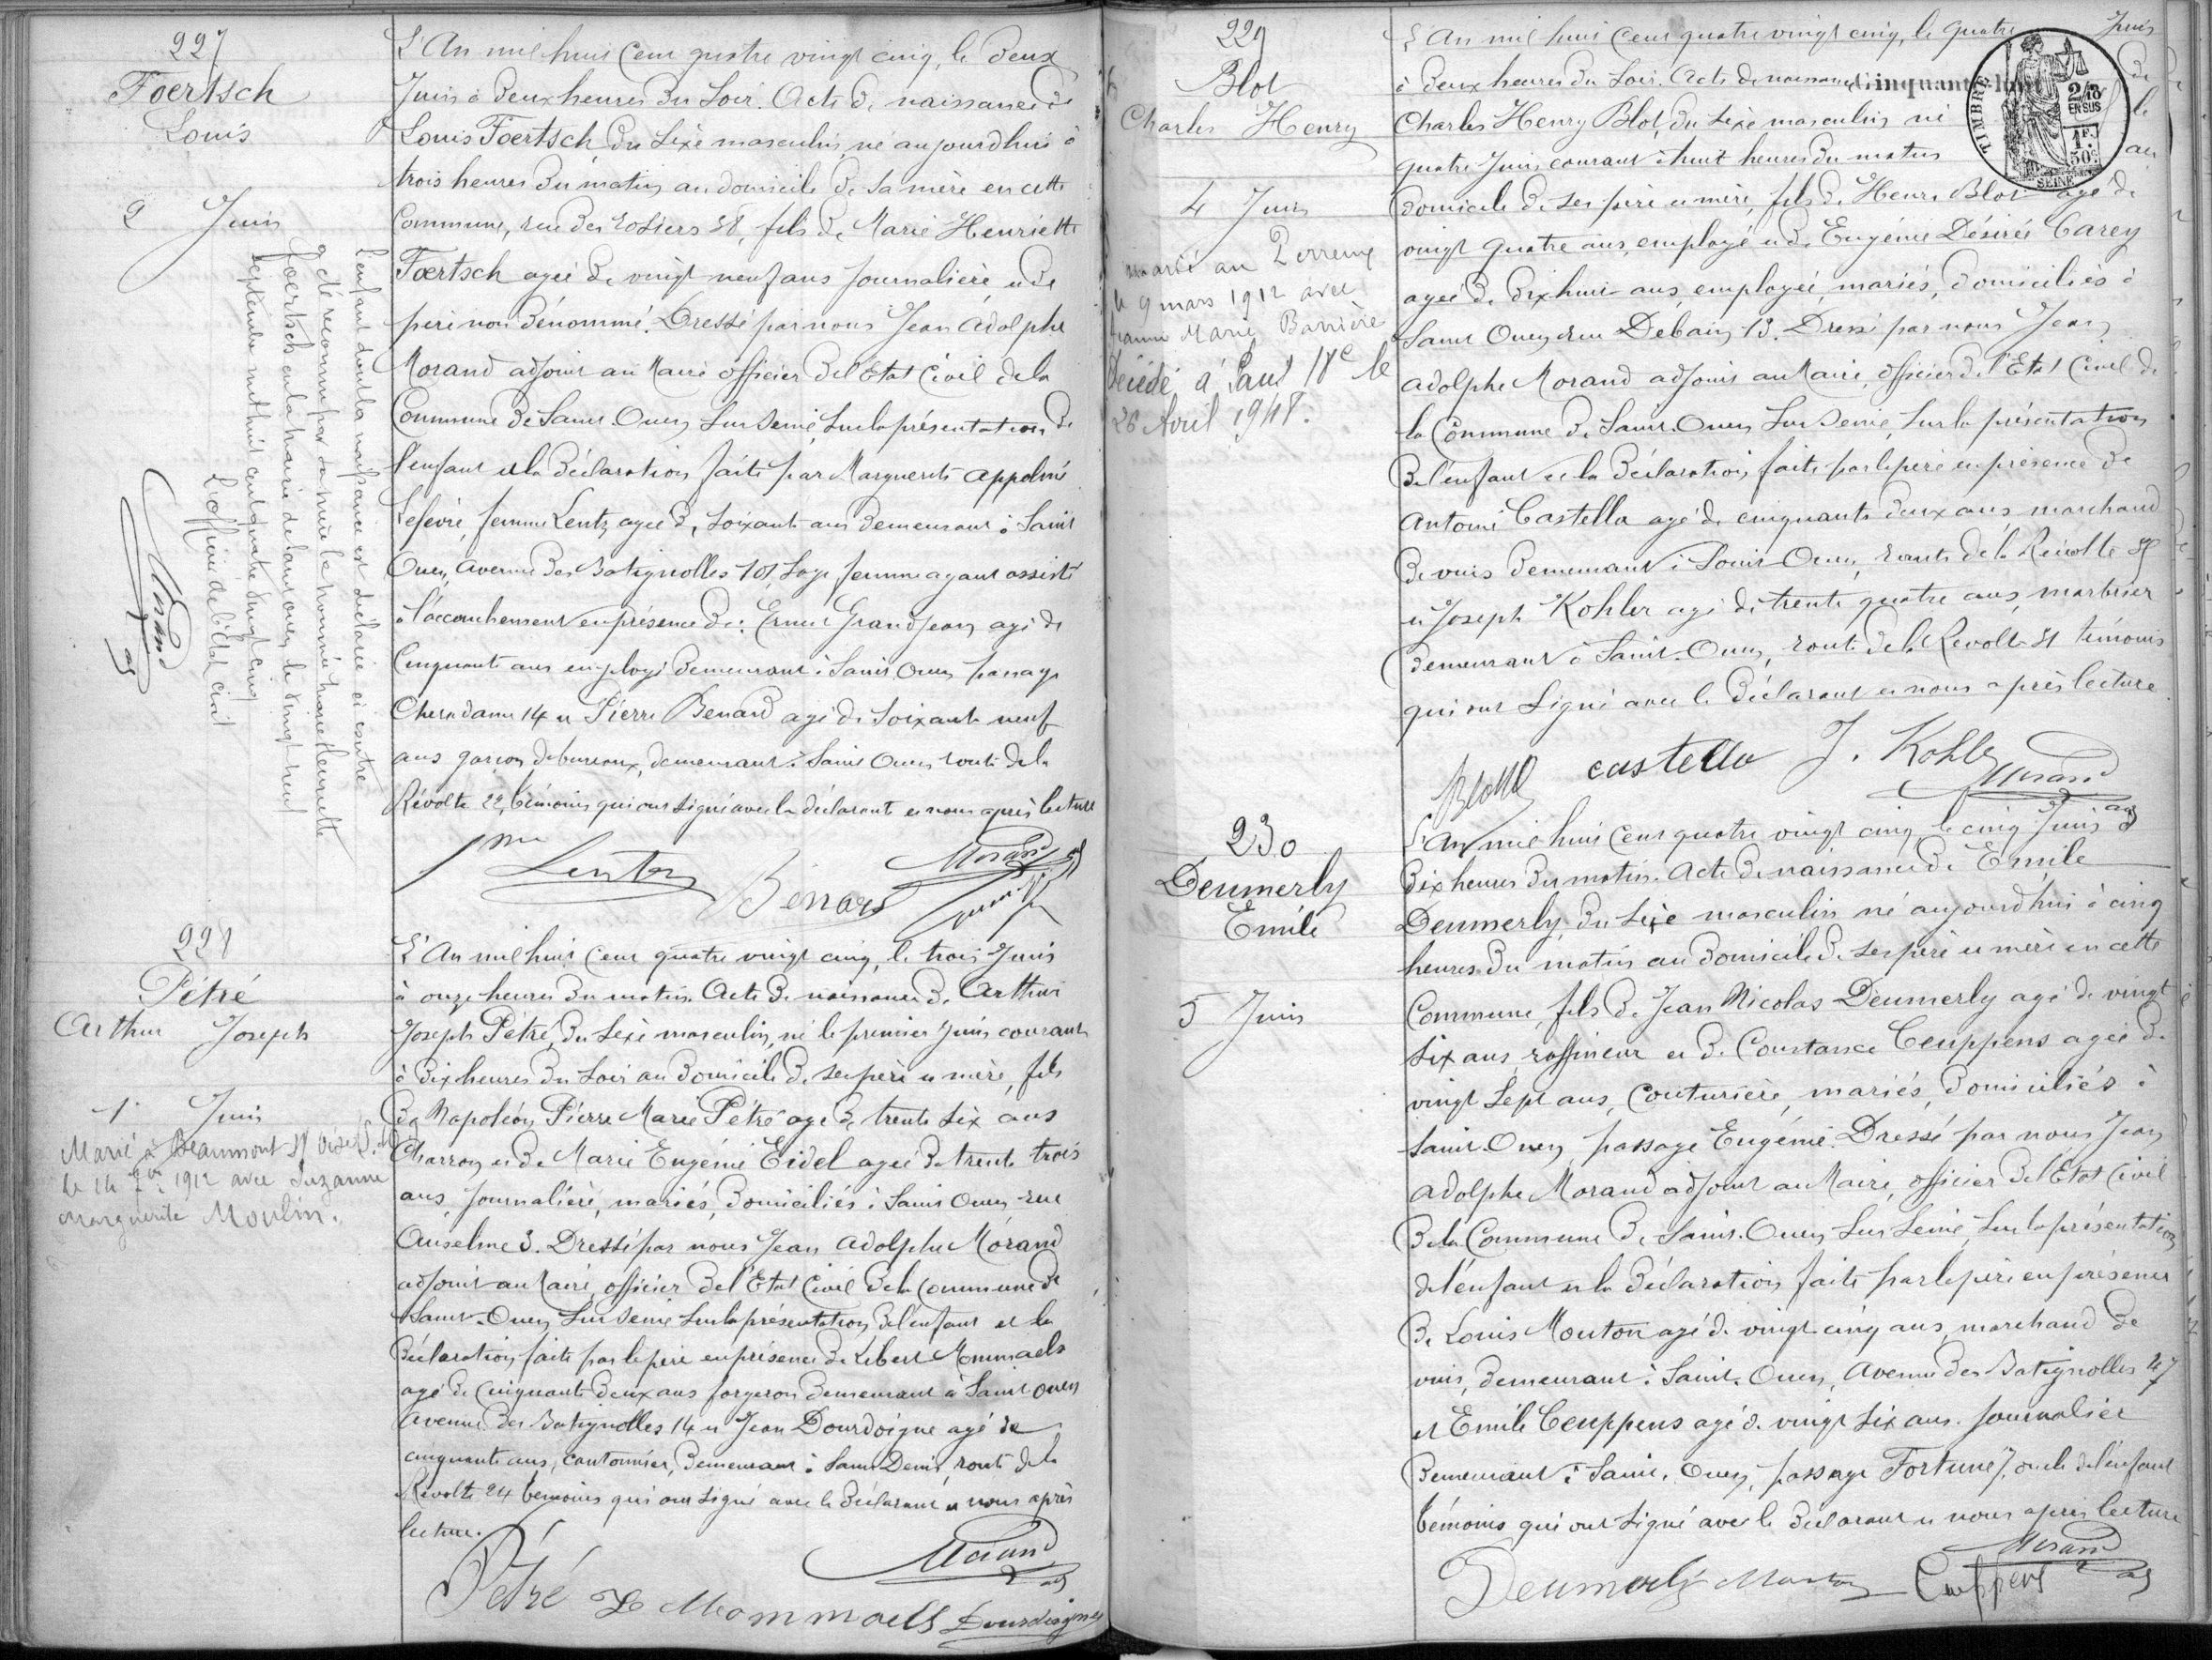 227
Foertsch
Louis
2 Juin
L'An mil huit cent quatre vingt cinq, le deux
Juin à deux heures du soir. Acte de naissance de
Louis Foertsch, du sexe masculin, né aujourdhui à
trois heures du matin au domicile de sa mère en cette
Commune, rue des Rosiers 38, fils de Marie Henriette
Foertsch agée de vingt neuf ans journalière et de
père non dénommé. Dressé par nous Jean Adolphe
Morand adjoint au Maire officier de l'Etat Civil de la
Commune de Saint-Ouen sur Seine, sur la présentation de
l'enfant et la déclaration faite par Marguerite Appoline
Lefèvre, femme Lentz agée de soixante ans demeurant à Saint
Ouen, Avenue des Batignolles 101, Sage femme ayant assisté
à l'accouchement en présence de: Ernest Grandjean agé de
Cinquante ans employé demeurant à Saint Ouen passage
14 et Pierre Benard agé de soixante neuf
ans garçon de bureaux, demeurant à Saint Ouen route de la
Révolte 22, témoins qui ont signé avec la déclarante et nous après lecture
fme Lentz Benard Morand
L'enfant dont la naissance est déclarée ci contre
a été reconnu par sa mère la nommée Marie Henriette
Foertsch en la mairie de Saint Ouen le vingt neuf
septembre mil huit cent quatre vingt cinq
L'officier de l'état civil
Morand adj
228
Pétré
Arthur Joseph
1er Juin
Marié à Beaumont s/ Oise (S.&O.)
le 14 1912 avec Suzanne
Marguerite Moulin.
L'An mil huit cent quatre vingt cinq, le trois Juin
à onze heures du matin. Acte de naissance de Arthur
Joseph Pétré, du sexe masculin, né le premier Juin courant
à dix heures du soir au domicile de ses père et mère, fils
de Napoléon Pierre Marie Pétré agé de trente six ans
Charron et de Marie Eugénie Eidel agée de trente trois
ans, journalière, mariés, domiciliés à Saint Ouen rue
Anselme 3. Dressé par nous Jean Adolphe Morand
adjoint au Maire, officier de l'Etat Civil de la Commune de
Saint-Ouen sur Seine sur la présentation de l'enfant et la
déclaration faite par le père en présence de Libert Mommaels
agé de Cinquante deux ans forgeron demeurant à Saint Ouen
Avenue des Batignolles 14 et Jean Dourdoigne agé de
cinquante ans, cantonnier, demeurant à Saint Denis, route de la
Révolte 24 témoins qui ont signé avec le déclarant et nous après
lecture.
Morand adj
Pétré L Mommaels Dourdoigne
229
Blot
Charles Henry
4 Juin
marié au Perreux
le 9 mars 1912 avec
Jeanne Marie Barrière
Décédé à Paris 18e le
26 Avril 1948.
L'An mil huit cent quatre vingt cinq, le quatre Juin
à deux heures du soir. Acte de naissance de
Charles Henry Blot, du sexe masculin né le
quatre Juin courant à huit heures du matin au
domicile de ses père et mère, fils de Henri Blot agé de
vingt quatre ans, employé et de Eugénie Désirée Carey
agée de dix huit ans, employée, mariés, domiciliés à
Saint Ouen rue Debain 13. Dressé par nous Jean
Adolphe Morand adjoint au Maire, officier de l'Etat Civil de
la Commune de Saint-Ouen sur Seine, sur la présentation
de l'enfant et la déclaration faite par le père en présence de
Antoine Castella agé de cinquante deux ans marchand
de vins demeurant à Saint-Ouen, route de la Révolte 51
et Joseph Kohler agé de trente quatre ans, marbrier
demeurant à Saint-Ouen, route de la Révolte 51 témoins
qui ont signé avec le déclarant et nous après lecture
Castella J. Kohler Morand adj
TIMBRE
Cinquante huit
2/10 EN SUS
1F. 50c.
SEINE
230
Deumerly
Emile
5 Juin
L'An mil huit cent quatre vingt cinq, le cinq Juin à
dix heures du matin. Acte de naissance de Emile
Deumerly, du sexe masculin né aujourdhui à cinq
heures du matin au domicile de ses père et mère en cette
Commune, fils de Jean Nicolas Deumerly agé de vingt
six ans, raffineur et de Constance Ceuppens agée de
vingt sept ans, Couturière, mariés, domiciliés à
Saint-Ouen, passage Eugénie. Dressé par nous Jean
Adolphe Morand adjoint au Maire, officier de l'Etat Civil
de la Commune de Saint-Ouen sur Seine, sur la présentation
de l'enfant et la déclaration faite par le père en présence
de Louis Mouton agé de vingt cinq ans, marchand de
vins, demeurant à Saint-Ouen, Avenue des Batignolles 47
et Emile Ceuppens agé de vingt six ans. journalier
demeurant à Saint-Ouen, passage Fortune 7, oncle de l'enfant
témoins qui ont signé avec le déclarant et nous après lecture
Morand adj
Deumerly Mouton Ceuppens